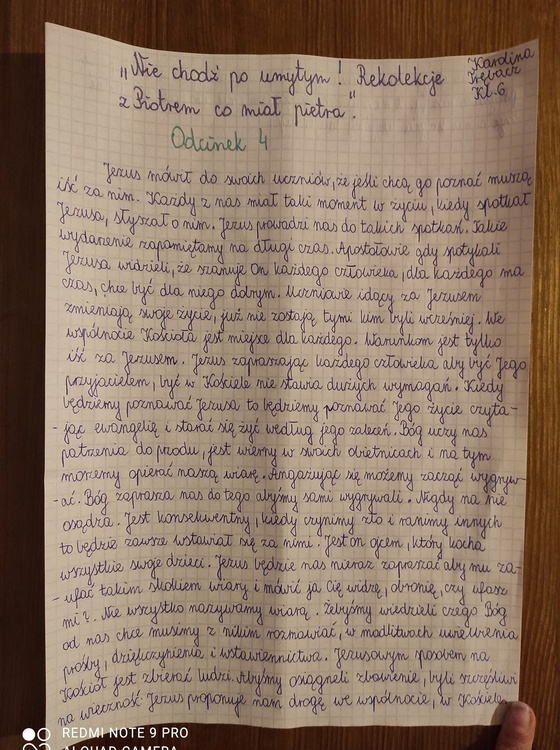 "Nie chodź po umytym! Rekolekcje
z Piotrem co miał pietra".
Karolina
Trębacz
Kl.6
Odcinek 4
Jezus mówił do swoich uczniów, że jeśli chcą go poznać muszą
iść za nim. Każdy z nas miał taki moment w życiu, kiedy spotkał
Jezusa, słyszał o nim. Jezus prowadzi nas do takich spotkań. Takie
wydarzenie zapamiętamy na długi czas. Apostołowie gdy spotykali
Jezusa widzieli, że szanuje On każdego człowieka, dla każdego ma
czas, chce być dla niego dobrym. Uczniowie idący za Jezusem
zmieniają swoje życie, już nie zostają tymi kim byli wcześniej. We
wspólnocie Kościoła jest miejsce dla każdego. Warunkiem jest tylko
iść za Jezusem. Jezus zapraszając każdego człowieka aby być Jego
przyjacielem, być w Kościele nie stawia dużych wymagań. Kiedy
będziemy poznawać Jezusa to będziemy poznawać Jego życie czyta-
-jąc ewangelię i starać się żyć według jego zaleceń. Bóg uczy nas
patrzenia do przodu, jest wierny w swoich obietnicach i na tym
możemy opierać naszą wiarę. Angażując się możemy zacząć wygryw-
-ać. Bóg zaprasza nas do tego abyśmy sami wygrywali. Nigdy na nie
osądza. Jest konsekwentny, kiedy czynimy zło i ranimy innych
to będzie zawsze wstawiał się za nimi. Jest on ojcem, który kocha
wszystkie swoje dzieci. Jezus będzie nas nieraz zapraszać aby mu za-
-ufać takim skokiem wiary i mówić ja Cię widzę, obronię, czy ufasz
mi?. Nie wszystko nazywamy wiarą. Żebyśmy wiedzieli czego Bóg
od nas chce musimy z nikim rozmawiać, w modlitwach uwielbienia
prośby, dziękczynienia i wstawiennictwa. Jezusowym sposobem na
Kościół jest zbierać ludzi. Abyśmy osiągneli zbawienie, byli szczęśliwi
na wieczność Jezus proponuje nam drogę we wspólnocie, w Kościele.
REDMI NOTE 9 PRO
AI QUAD CAMERA